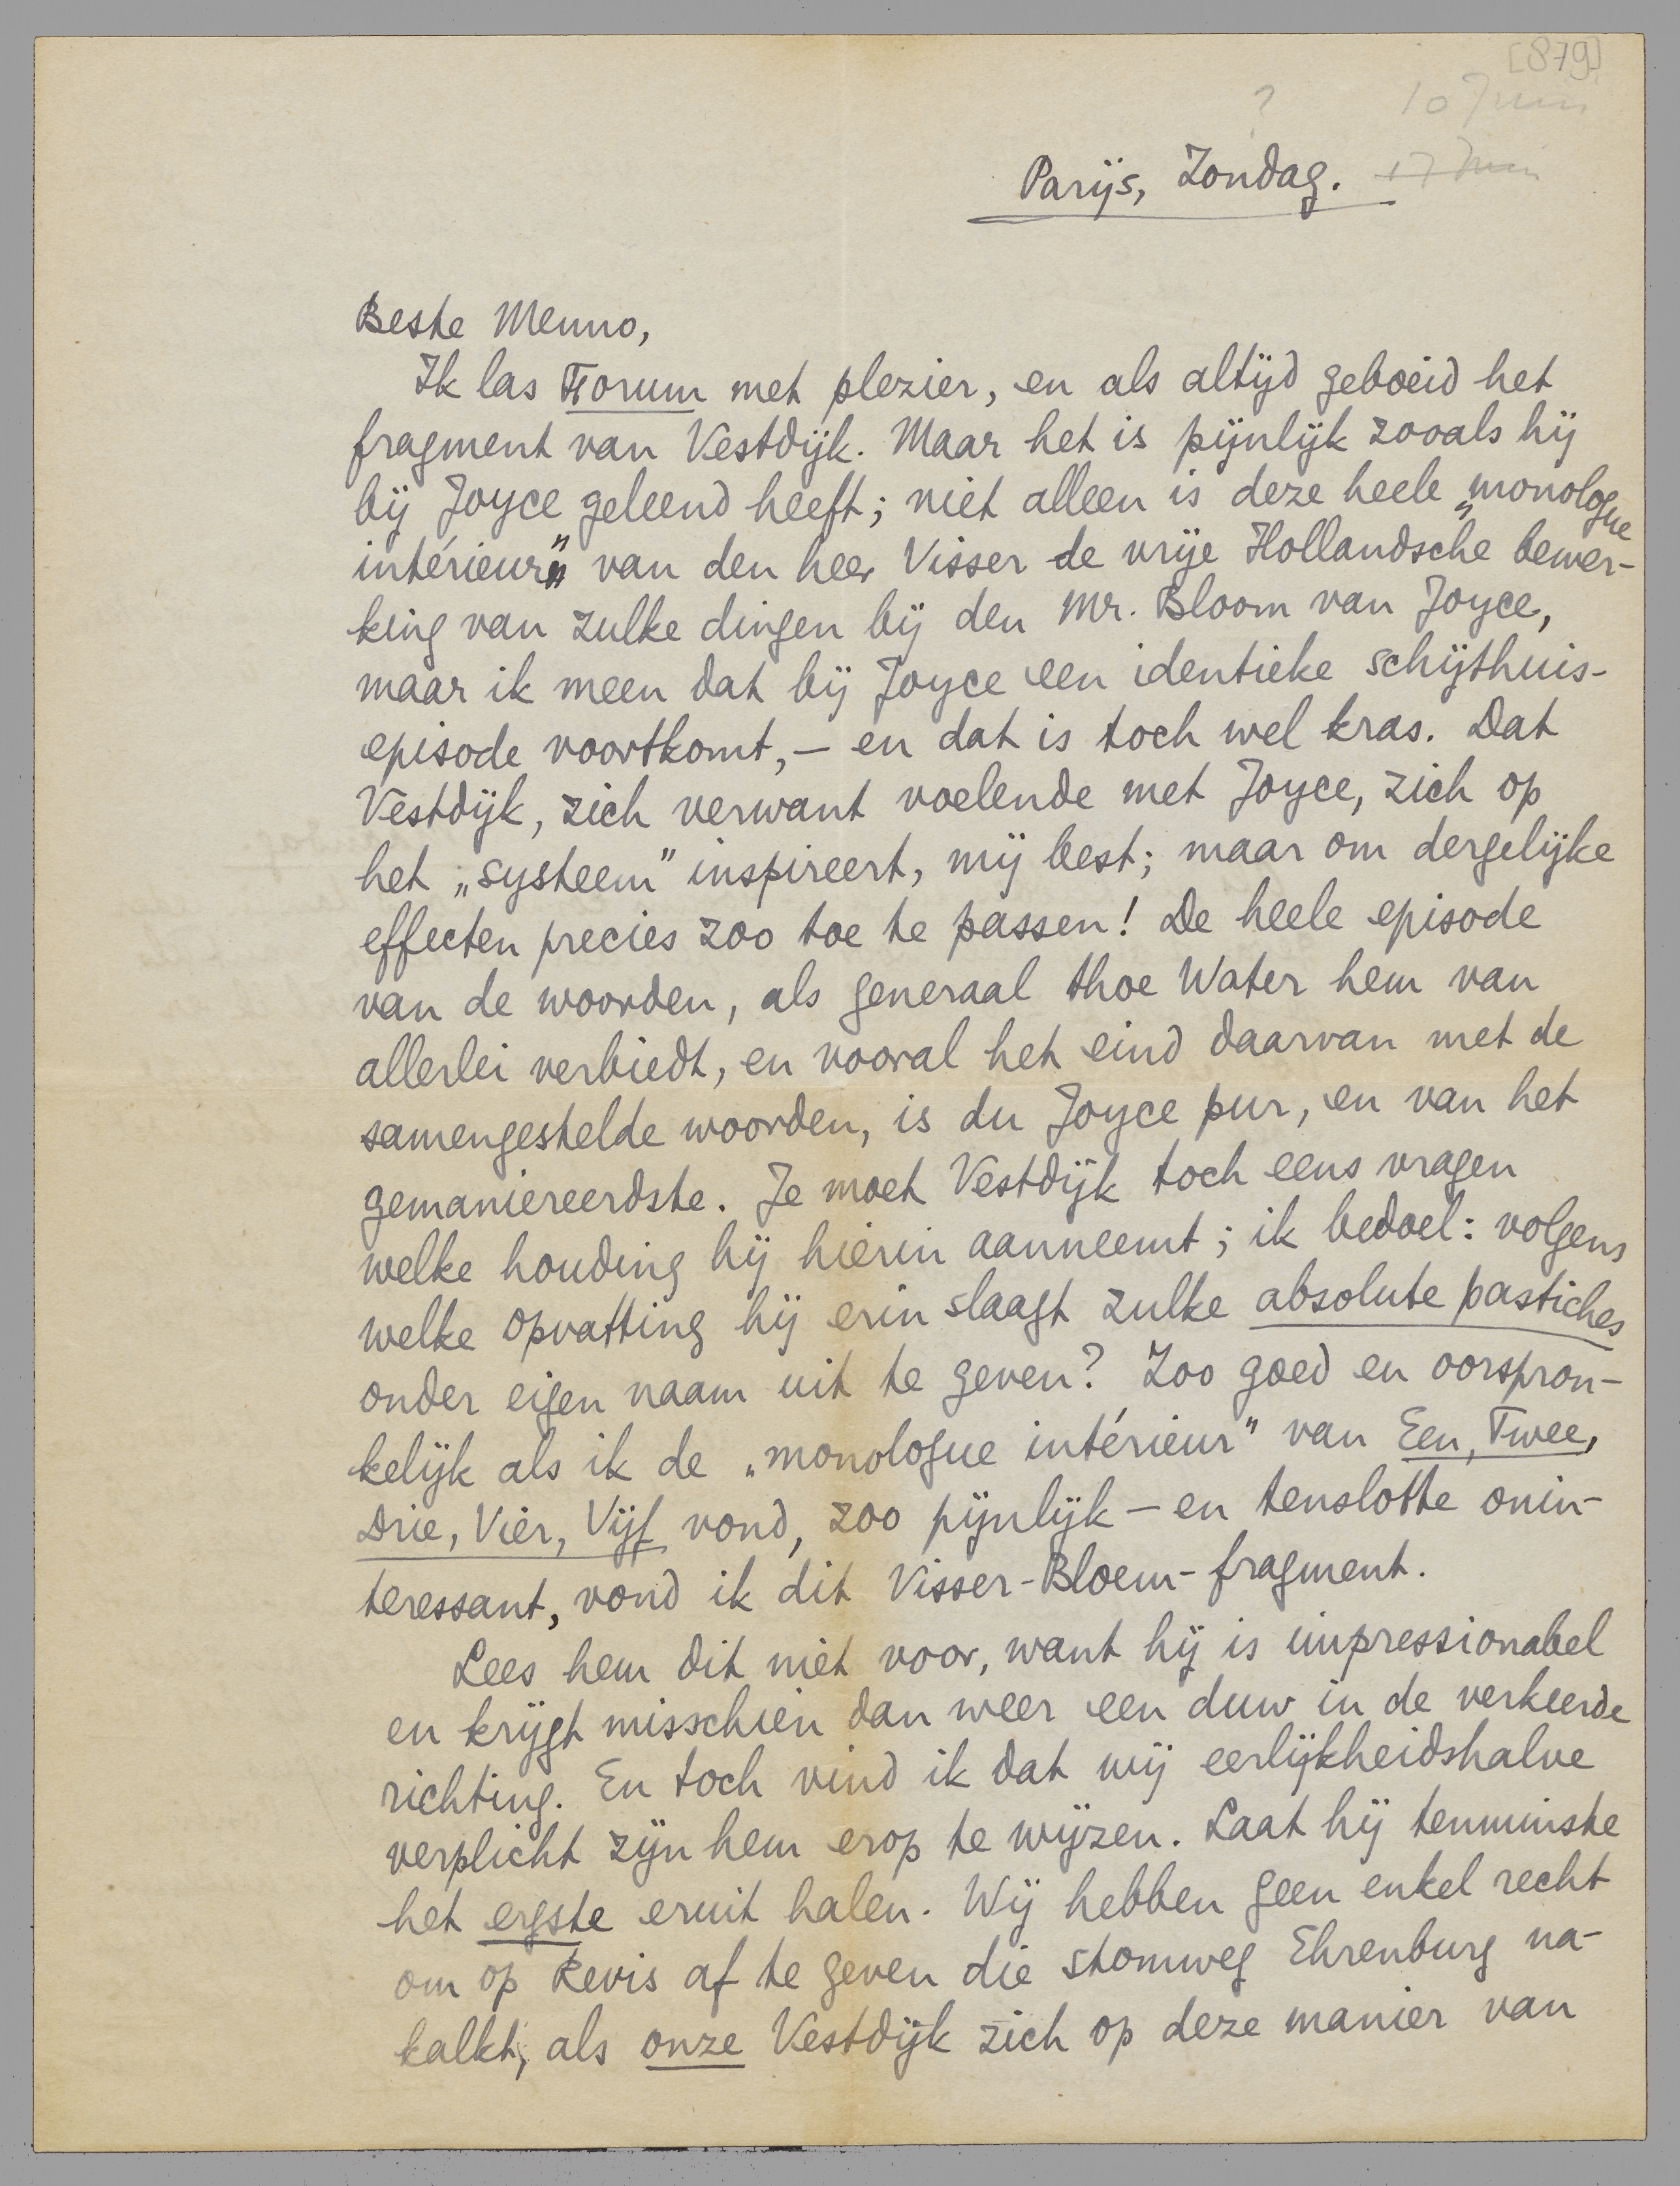 [879]
? 10 Juni
Parijs, Zondag. 17 Juni
Beste Menno,
Ik las Forum met plezier, en als altijd geboeid het
fragment van Vestdijk. Maar het is pijnlijk zooals hij
bij Joyce geleend heeft; niet alleen is deze heele „monologue
intérieur" van den heer Visser de vrije Hollandsche bewer-
king van zulke dingen bij den Mr. Bloom van Joyce,
maar ik meen dat bij Joyce een identieke schijthuis-
episode voortkomt, — en dat is toch wel kras. Dat
Vestdijk, zich verwant voelende met Joyce, zich op
het „systeem" inspireert, mij best; maar om dergelijke
effecten precies zoo toe te passen! De heele episode
van de woorden, als generaal thoe Water hem van
allerlei verbiedt, en vooral het eind daarvan met de
samengestelde woorden, is du Joyce pur, en van het
gemaniereerdste. Je moet Vestdijk toch eens vragen
welke houding hij hierin aanneemt; ik bedoel: volgens
welke opvatting hij erin slaagt zulke absolute pastiches
onder eigen naam uit te geven? Zoo goed en oorspron-
kelijk als ik de „monologue intérieur" van Een, Twee,
Drie, Vier, Vijf vond, zoo pijnlijk — en tenslotte onin-
teressant, vond ik dit Visser-Bloem-fragment.
Lees hem dit niet voor, want hij is impressionabel
en krijgt misschien dan weer een duw in de verkeerde
richting. En toch vind ik dat wij eerlijkheidshalve
verplicht zijn hem erop te wijzen. Laat hij tenminste
het ergste eruit halen. Wij hebben geen enkel recht
om op Revis af te geven die stomweg Ehrenburg na-
kalkt, als onze Vestdijk zich op deze manier van